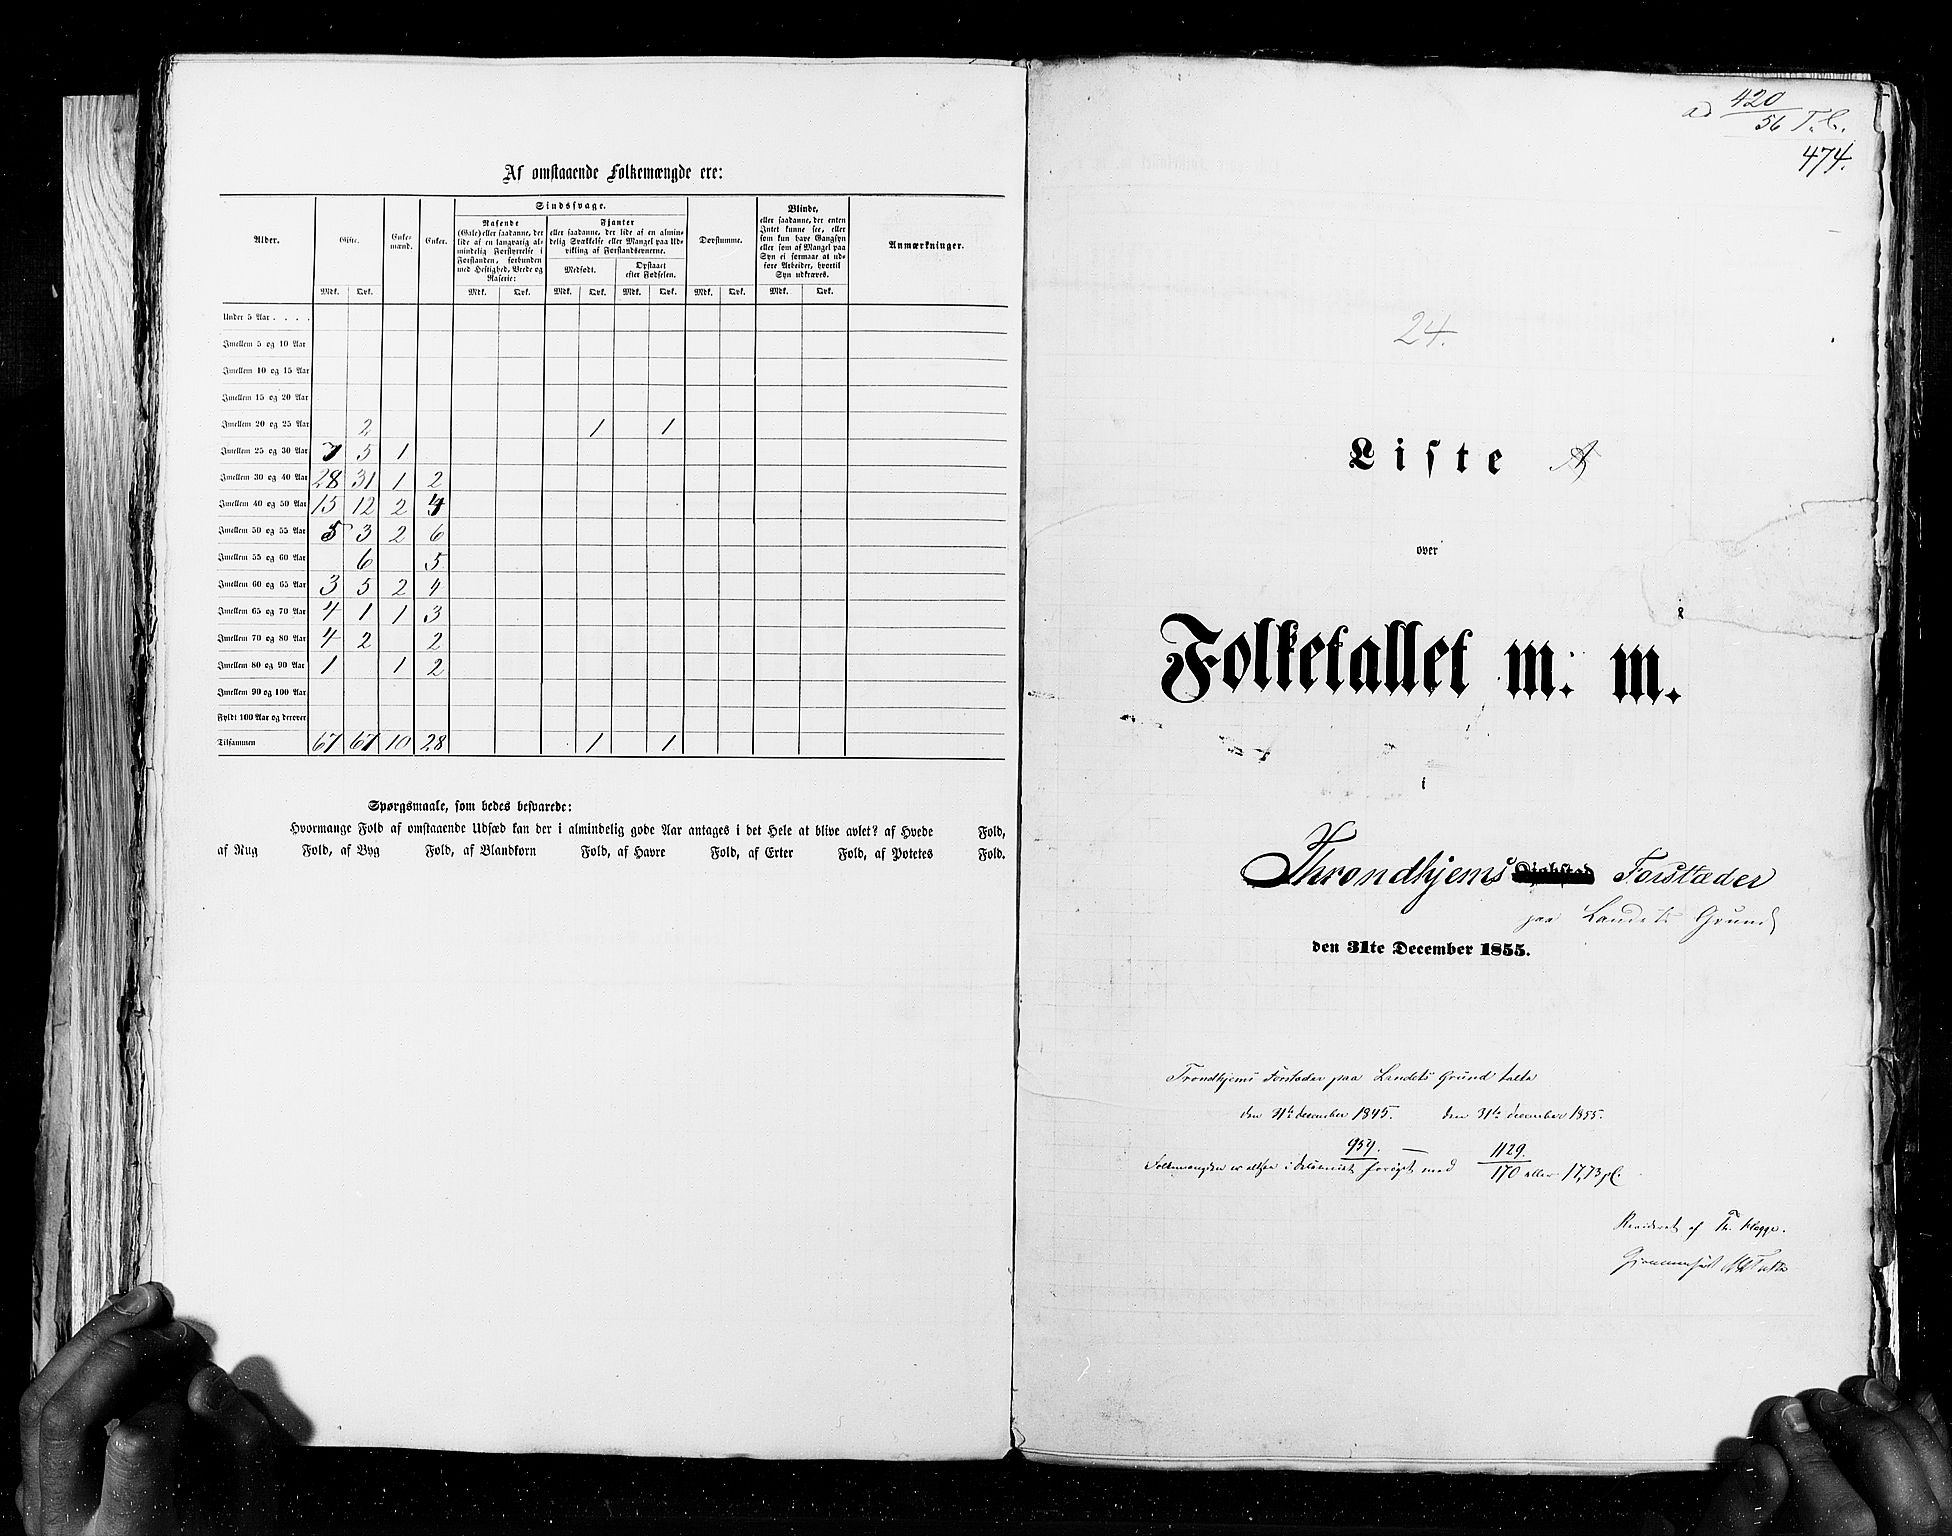 Af omstaaende Folkemængde ere:
Alder. Gifte. Enkemænd. Enker. Sindssvage. Døvstumme. Blinde, Anmærkninger.
Rasende
(Gale) eller saadanne, der
lide af en langvarig al-
mindelig Forstyrrelse i
Forstanden, forbunden
med Heftighed, Vrede og
Raserie:
Fjanter
eller saadanne, der lide af en almin-
delig Svækkelse eller Mangel paa Ud-
vikling af Forstandsevnerne.
Medfødt. Opstaaet
efter Fødselen.
eller saadanne, der enten
Intet kunne see, eller
som kun have Gangsyn
eller som af Mangel paa
Syn ei formaae at ud-
føre Arbeider, hvortil
Syn udkræves.
Mdk. Qvk. Mdk. Qvk. Mdk. Qvk. Mdk. Qvk. Mdk. Qvk. Mdk. Qvk.
Under 5 Aar . . . .
Imellem 5 og 10 Aar
Imellem 10 og 15 Aar
Imellem 15 og 20 Aar
Imellem 20 og 25 Aar 2 1 1
Imellem 25 og 30 Aar 7 5 1
Imellem 30 og 40 Aar 28 31 1 2
Imellem 40 og 50 Aar 15 12 2 4
Imellem 50 og 55 Aar 5 3 2 6
Imellem 55 og 60 Aar 6 5
Imellem 60 og 65 Aar 3 5 2 4
Imellem 65 og 70 Aar 4 1 1 3
Imellem 70 og 80 Aar 4 2 2
Imellem 80 og 90 Aar 1 1 2
Imellem 90 og 100 Aar
Fyldt 100 Aar og derover
Tilsammen 67 67 10 28 1 1
Spørgsmaale, som bedes besvarede:
Hvormange Fold af omstaaende Udsæd kan der i almindelig gode Aar antages i det Hele at blive avlet? af Hvede Fold,
af Rug Fold, af Byg Fold, af Blandkorn Fold, af Havre Fold, af Erter Fold, af Potetes Fold.
ad 420
56 T.C.
474.
24.
Liste A
over
Folketallet m. m.
i
Throndhjems Forstæder
paa Landets Grund
den 31te December 1855.
Trondhjems Forstæder paa Landets Grund talte
den 31te December 1845. den 31te December 1855.
959. — 1129.
Folkemængden er altsaa i Decenniet forøget med 170 eller 17,73 pC.
Revideret af Th. Klogge.